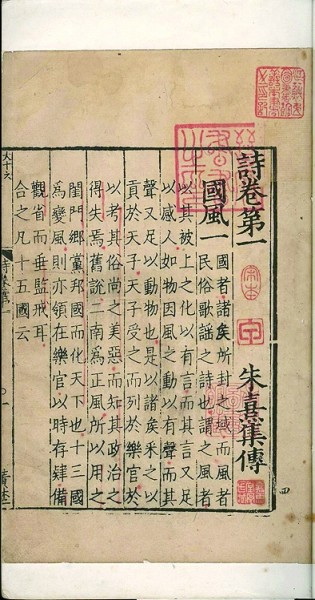 詩卷第一 朱熹集傳
國風一 國者諸矦所封之域而風者
民俗歌謠之詩也謂之風者
以其被上之化以有言而其言又足
以感人如物因風之動以有聲而其
聲又足以動物也是以諸矦采之以
貢於天子天子受之而列於樂官於
以考其俗尚之美惡而知其政治之
得失焉舊說二南為正風所以用之
閨門鄉黨邦國而化天下也十三國
為變風則亦領在樂官以時存肄備
觀省而垂監戒耳
合之凡十五國云
詩卷第一
宋本
四